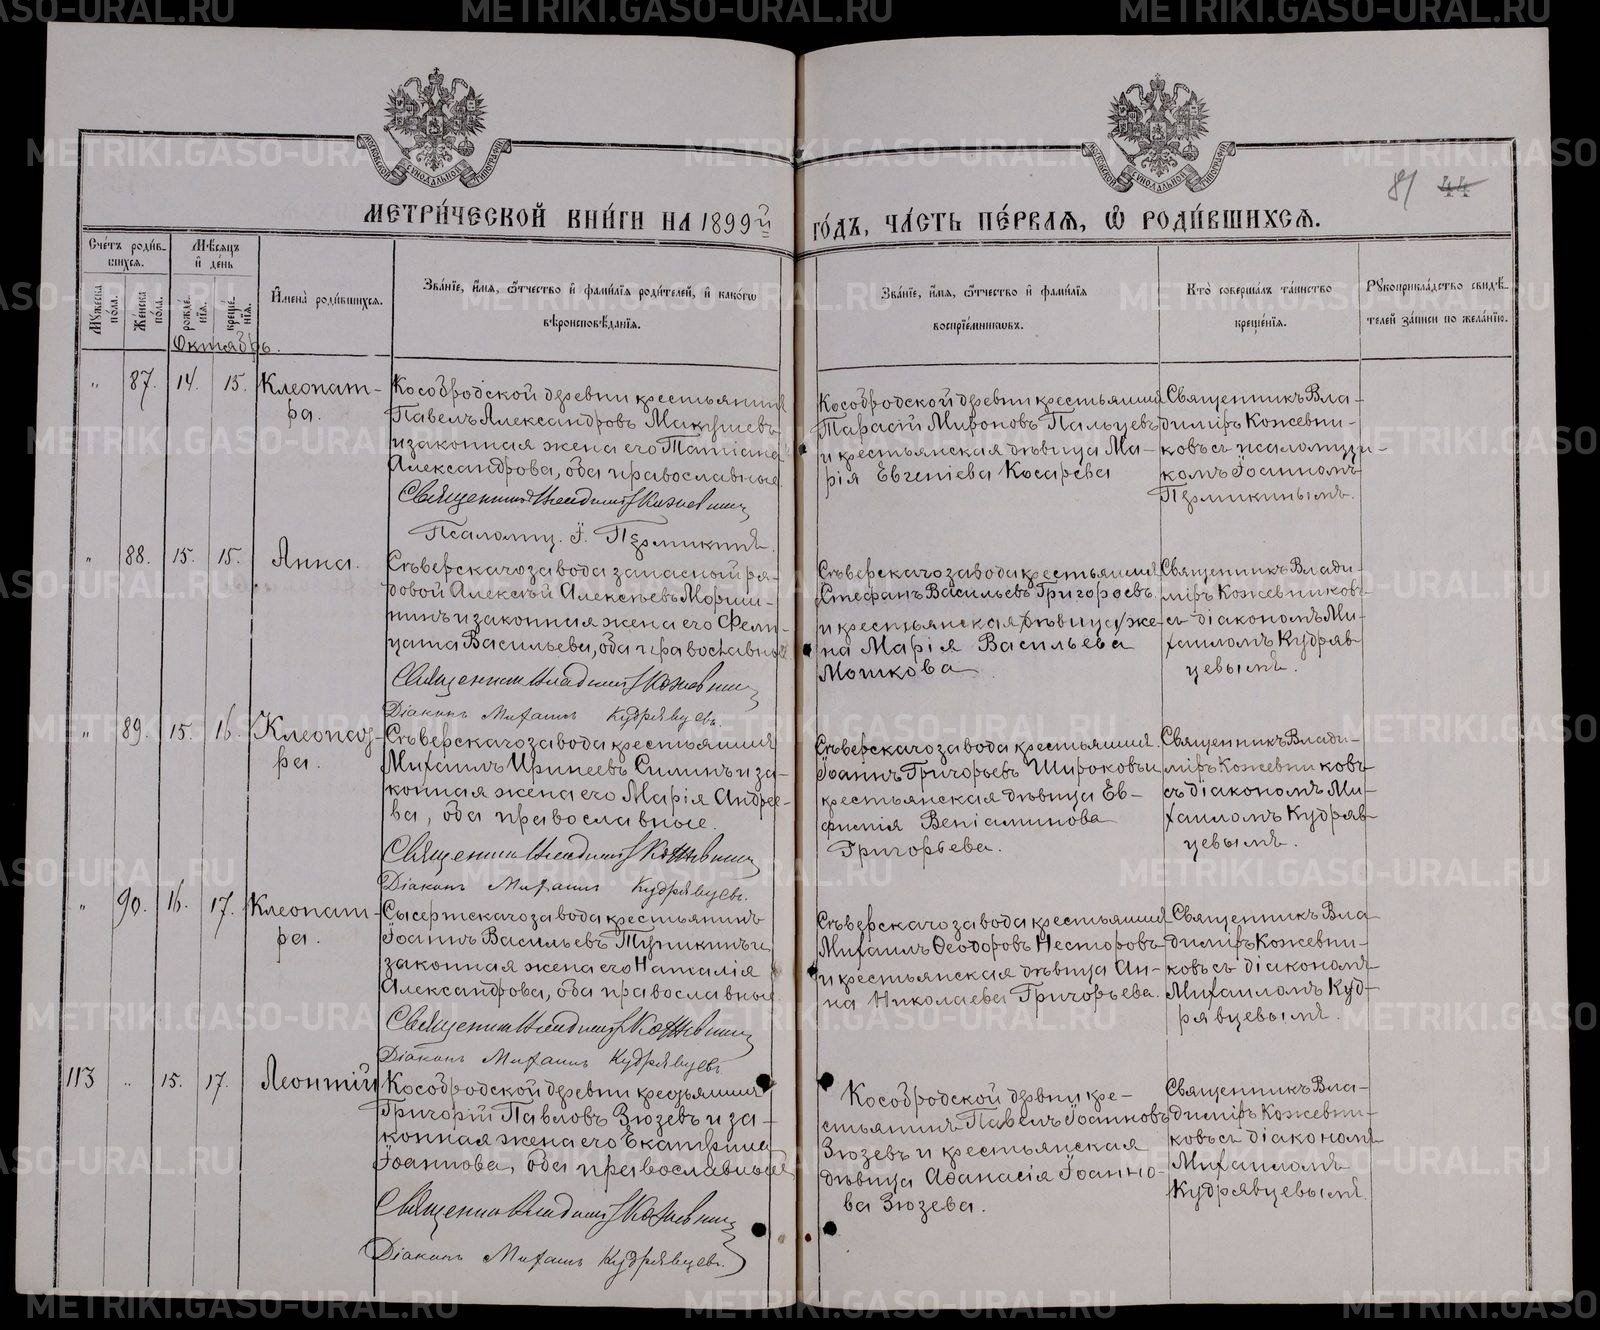 METRIKI.GASO-URAL.RU
МЕТРИ́ЧЕСКОЙ КНИ́ГИ НА 1899й ГО́ДЪ, ЧА́СТЬ ПЕ́РВАЯ, Ѽ РОДИ́ВШИХСѦ.
81 44
Сче́тъ роди́в-
шихсѧ.
Мꙋ́жеска по́ла.
Же́нска по́ла.
Мѣ́сяцъ и҆ де́нь
рожде́нїѧ.
креще́нїѧ.
И҆мена̀ роди́вшихсѧ.
Зва́нїе, и҆́мѧ, ѻ҆́тчество и҆ фами́лїѧ роди́телей, и҆ како́гѡ
вѣроисповѣ́данїѧ.
Зва́нїе, и҆́мѧ, ѻ҆́тчество и҆ фами́лїѧ
воспрїе́мникѡвъ.
Кто̀ соверша́лъ та́инство
креще́нїѧ.
Рꙋкоприкла́дство свидѣ́-
телей за́писи по жела́нїю.
Октябрь.
„ 87. 14. 15. Клеопат-
ра.
Кособродской деревни крестьянинъ
Павелъ Александровъ Макушевъ
и законная жена его Татіана
Александрова, оба православные.
Священникъ Владиміръ Кожевник
Псаломщ. І. Пермикинъ.
Кособродской деревни крестьянинъ
Тарасій Мироновъ Пальцевъ
и крестьянская дѣвица Ма-
рія Евгеніева Косарева
Священникъ Вла-
диміръ Кожевни-
ковъ съ псаломщи-
комъ Іоанномъ
Пермикинымъ.
„ 88. 15. 15. Анна.
Сѣверскаго завода запасной ря-
довой Алексѣй Алексѣевъ Морши-
нинъ и законная жена его Фели-
цата Васильева, оба православные
Священникъ Владиміръ Кожевник
Діаконъ Михаилъ Кудрявцевъ.
Сѣверскаго завода крестьянинъ
Стефанъ Васильевъ Григорьевъ
и крестьянская дѣвица же-
на Марія Васильева
Мошкова
Священникъ Влади-
міръ Кожевниковъ
съ діакономъ Ми-
хаиломъ Кудряв-
цевымъ.
„ 89. 15. 16. Клеопат-
ра.
Сѣверскаго завода крестьянинъ
Михаилъ Иринеевъ Силинъ и за-
конная жена его Марія Андрее-
ва, оба православные.
Священникъ Владиміръ Кожевник
Діаконъ Михаилъ Кудрявцевъ.
Сѣверскаго завода крестьянинъ
Іоаннъ Григорьевъ Широковъ и
крестьянская дѣвица Ев-
фимія Веніаминова
Григорьева.
Священникъ Влади-
міръ Кожевниковъ
съ діакономъ Ми-
хаиломъ Кудряв-
цевымъ.
„ 90. 16. 17. Клеопат-
ра.
Сысертскаго завода крестьянинъ
Іоаннъ Васильевъ Тупикинъ и
законная жена его Наталія
Александрова, оба православные
Священникъ Владиміръ Кожевник
Діаконъ Михаилъ Кудрявцевъ
Сѣверскаго завода крестьянинъ
Михаилъ Ѳеодоровъ Несторовъ
и крестьянская дѣвица Ан-
на Николаева Григорьева.
Священникъ Вла-
диміръ Кожевни-
ковъ съ діакономъ
Михаиломъ Куд-
рявцевымъ.
113 „ 15. 17. Леонтій
Кособродской деревни крестьянинъ
Григорій Павловъ Зюзевъ и за-
конная жена его Екатерина
Іоаннова, оба православные
Священникъ Владиміръ Кожевник
Діаконъ Михаилъ Кудрявцевъ.
Кособродской деревни кре-
стьянинъ Павелъ Іоанновъ
Зюзевъ и крестьянская
дѣвица Аѳанасія Іоанно-
ва Зюзева.
Священникъ Вла-
диміръ Кожевни-
ковъ съ діакономъ
Михаиломъ
Кудрявцевымъ.